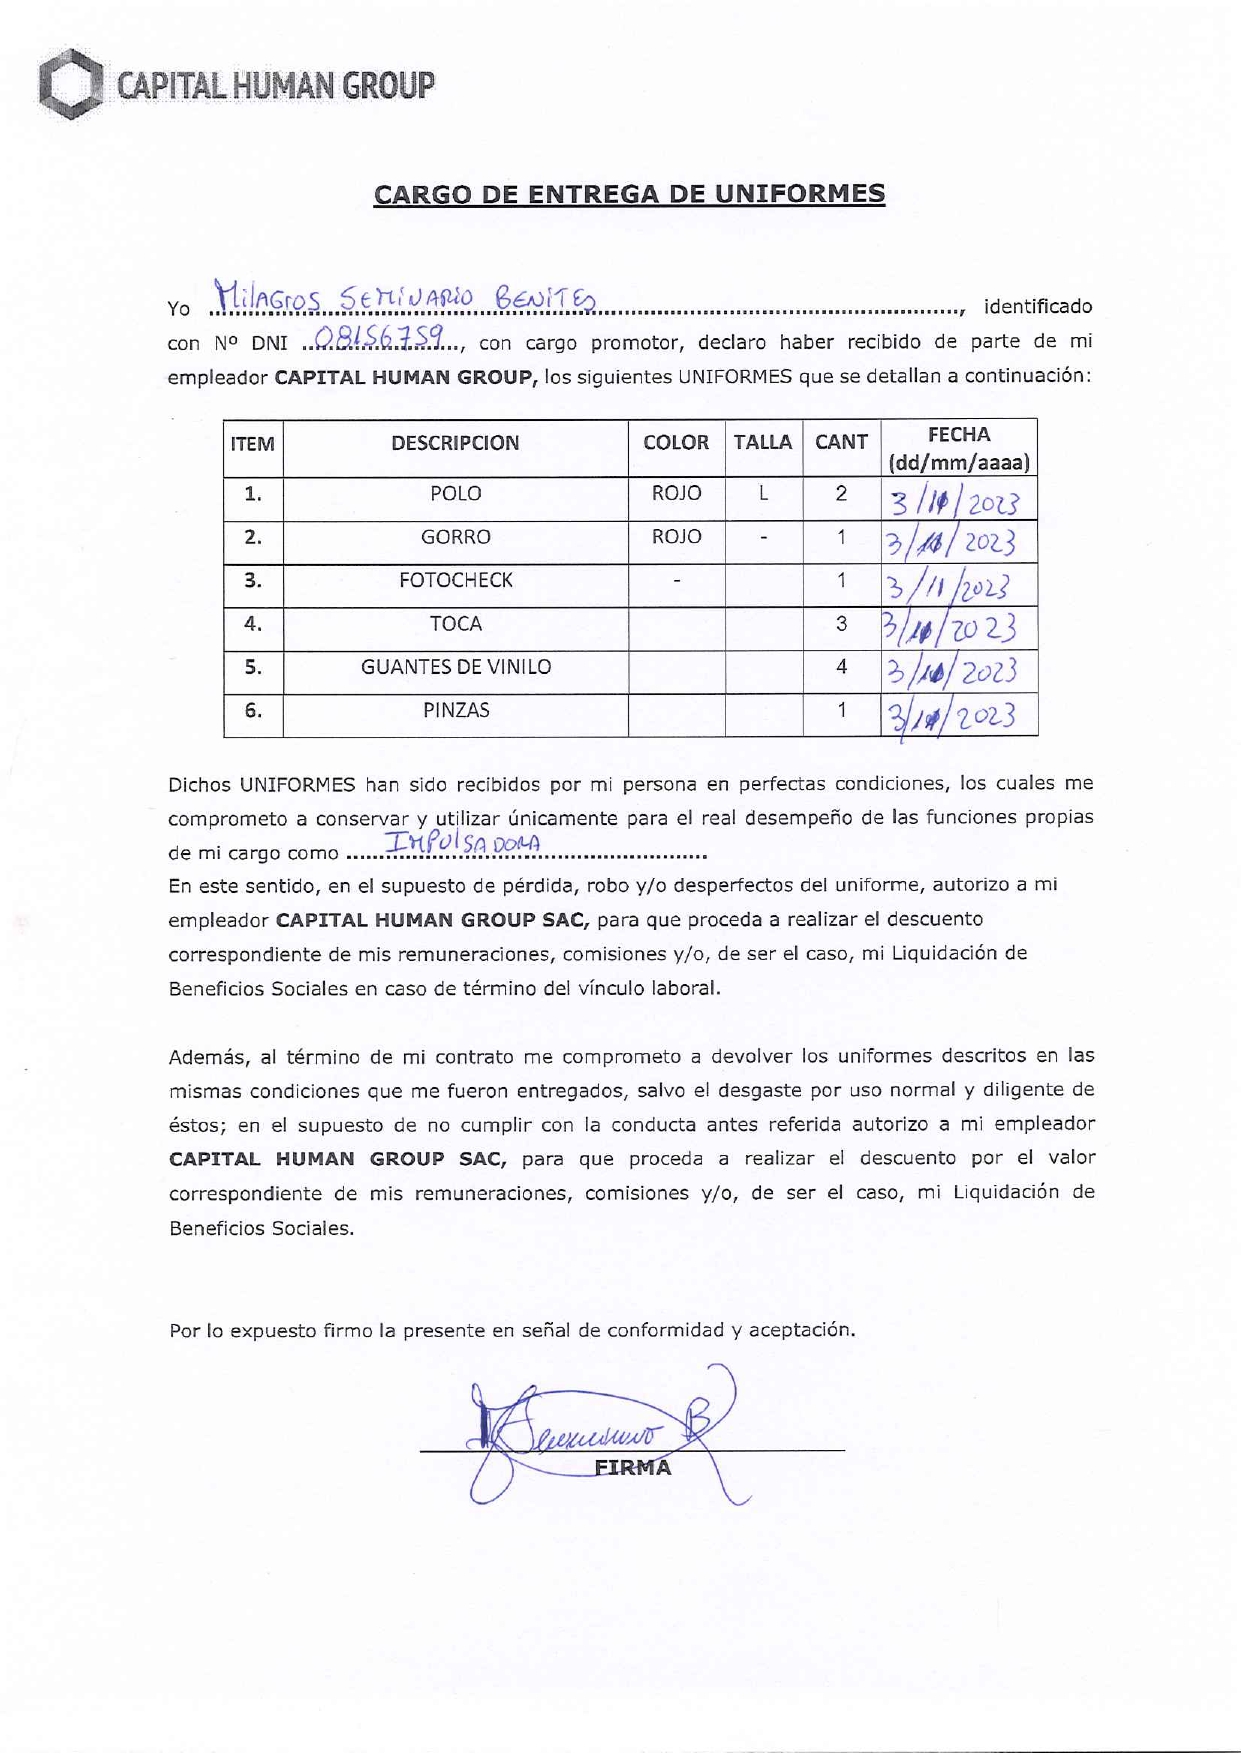 CAPITAL HUMAN GROUP
CARGO DE ENTREGA DE UNIFORMES
Yo MilAGros SEMiNARio BENITES, identificado
con Nº DNI 08156759, con cargo promotor, declaro haber recibido de parte de mi
empleador CAPITAL HUMAN GROUP, los siguientes UNIFORMES que se detallan a continuación:
ITEM DESCRIPCION COLOR TALLA CANT FECHA (dd/mm/aaaa)
1. POLO ROJO L 2 3/ /2023
2. GORRO ROJO - 1 3/ /2023
3. FOTOCHECK - 1 3/11/2023
4. TOCA 3 3/ /2023
5. GUANTES DE VINILO 4 3/ /2023
6. PINZAS 1 3/ /2023
Dichos UNIFORMES han sido recibidos por mi persona en perfectas condiciones, los cuales me
comprometo a conservar y utilizar únicamente para el real desempeño de las funciones propias
de mi cargo como IMPULSADORA
En este sentido, en el supuesto de pérdida, robo y/o desperfectos del uniforme, autorizo a mi
empleador CAPITAL HUMAN GROUP SAC, para que proceda a realizar el descuento
correspondiente de mis remuneraciones, comisiones y/o, de ser el caso, mi Liquidación de
Beneficios Sociales en caso de término del vínculo laboral.
Además, al término de mi contrato me comprometo a devolver los uniformes descritos en las
mismas condiciones que me fueron entregados, salvo el desgaste por uso normal y diligente de
éstos; en el supuesto de no cumplir con la conducta antes referida autorizo a mi empleador
CAPITAL HUMAN GROUP SAC, para que proceda a realizar el descuento por el valor
correspondiente de mis remuneraciones, comisiones y/o, de ser el caso, mi Liquidación de
Beneficios Sociales.
Por lo expuesto firmo la presente en señal de conformidad y aceptación.
FIRMA